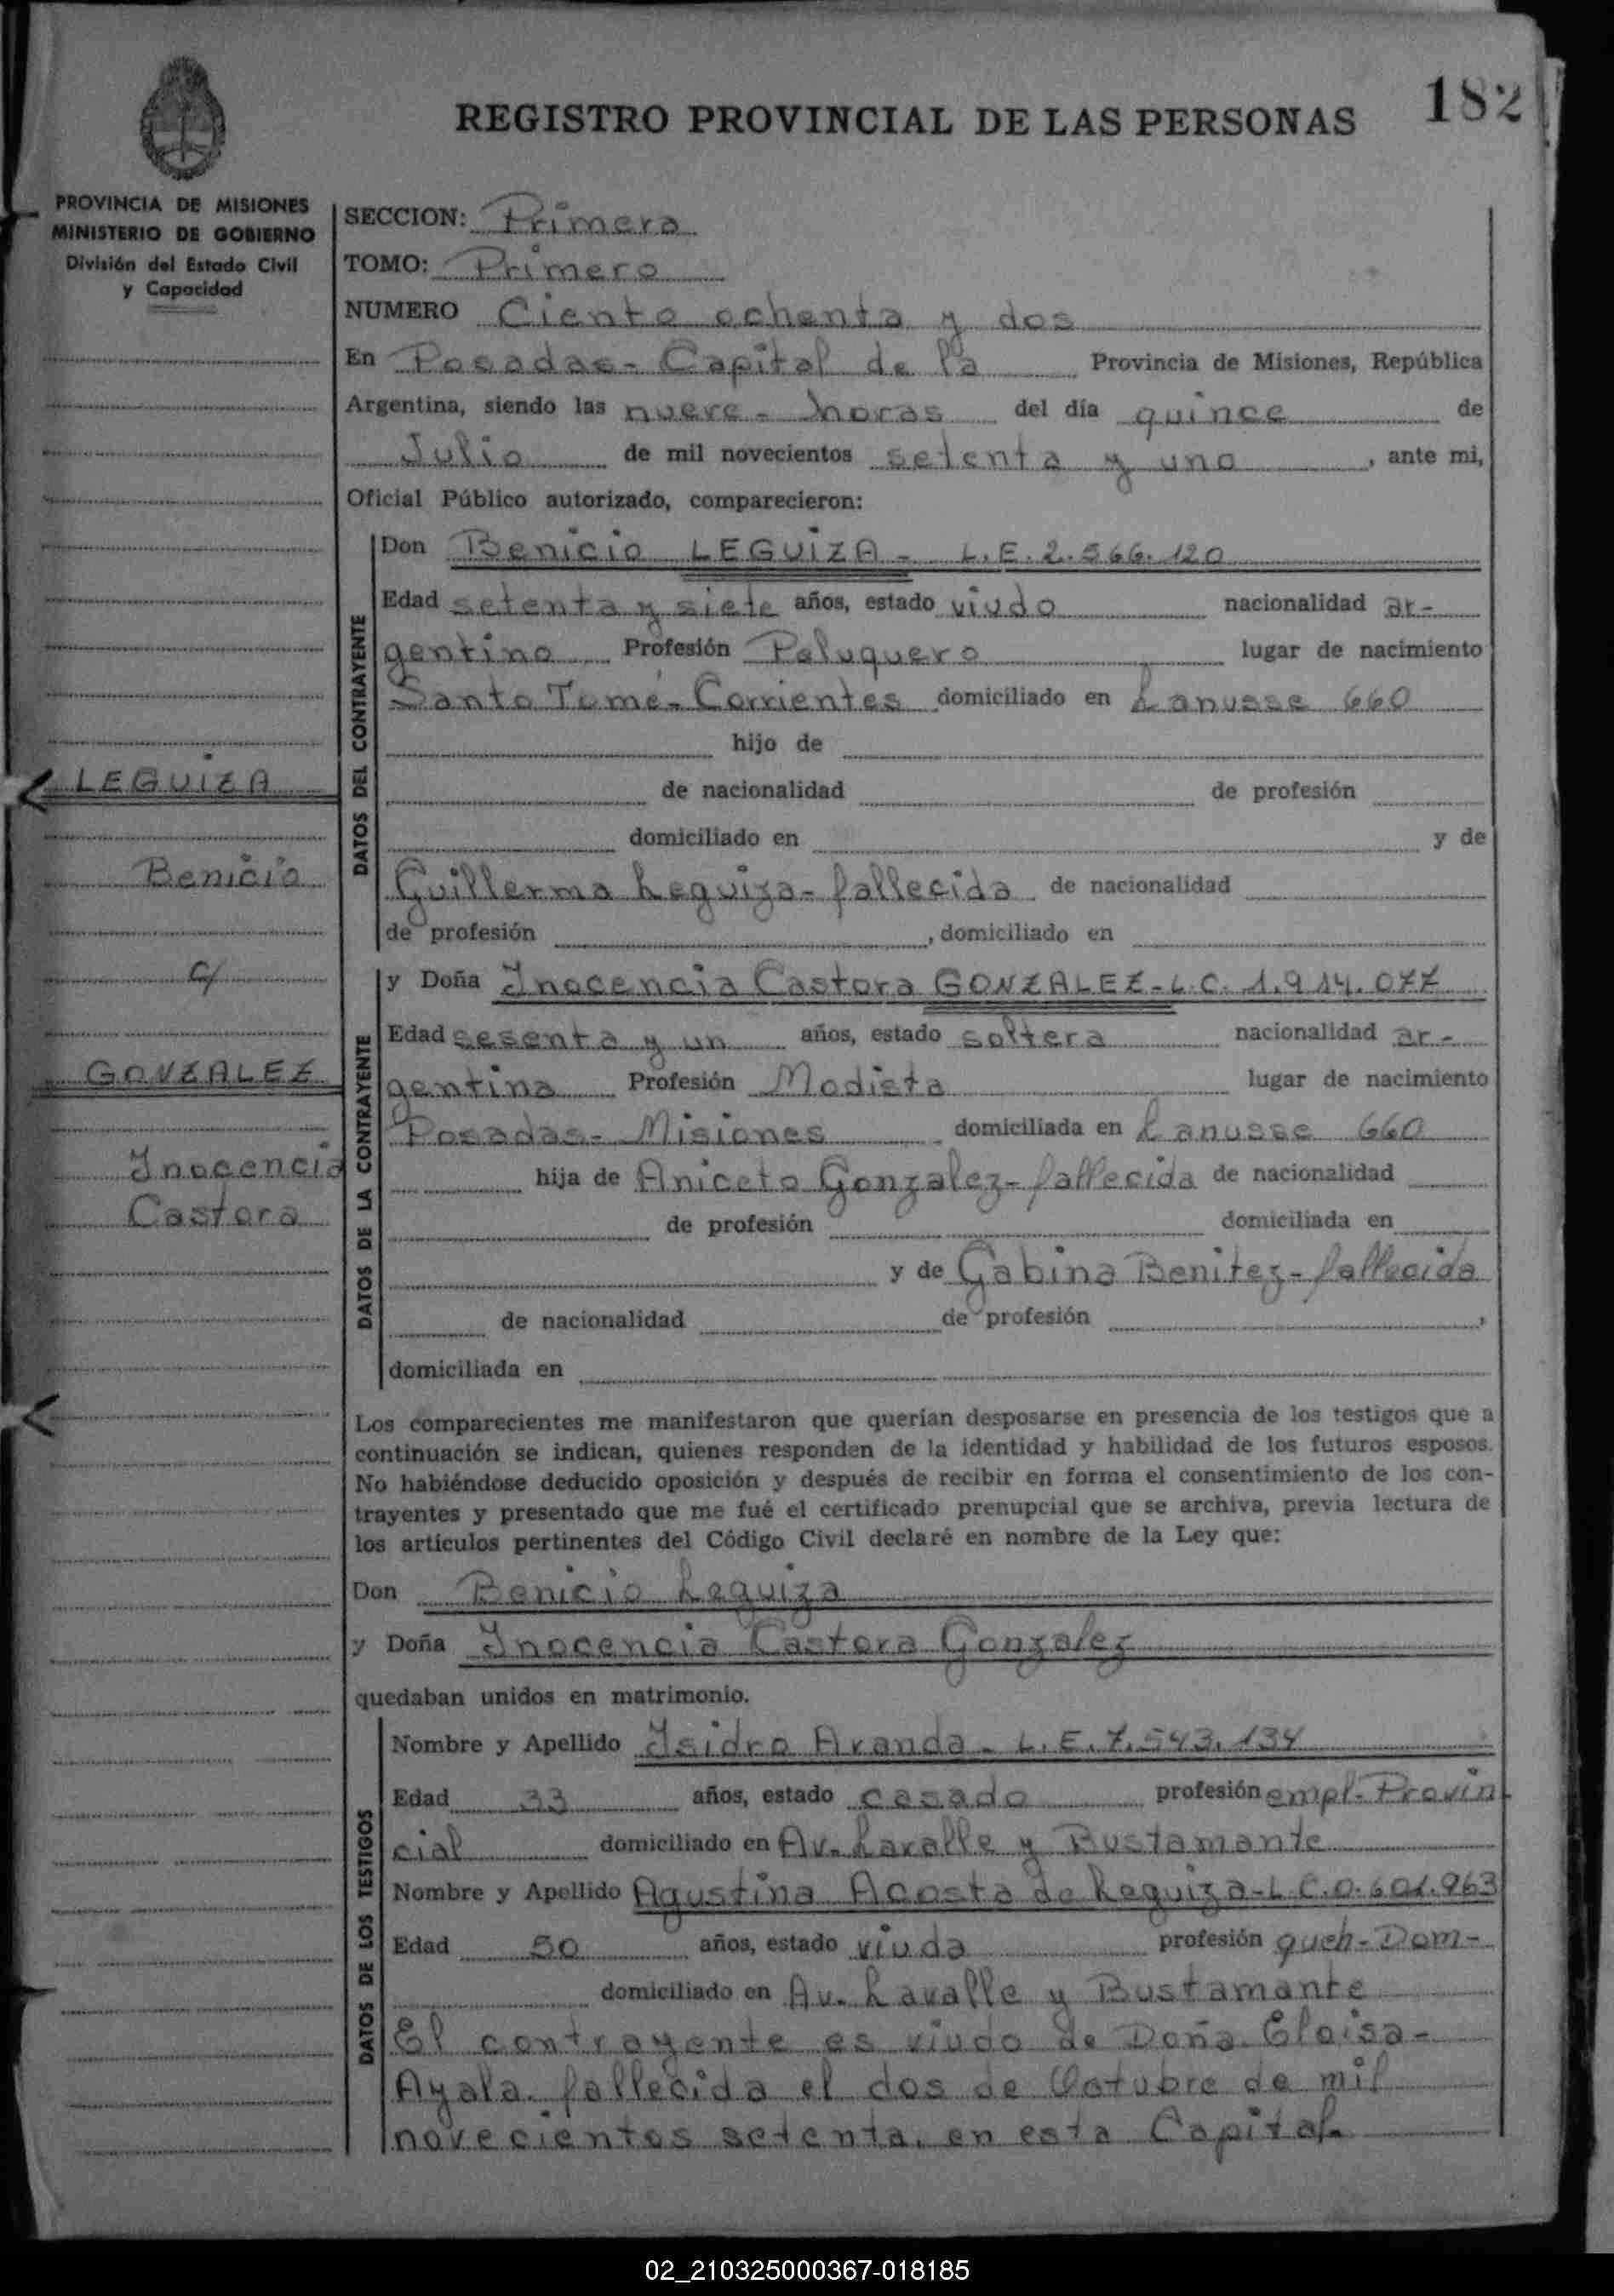 182
REGISTRO PROVINCIAL DE LAS PERSONAS
PROVINCIA DE MISIONES
MINISTERIO DE GOBIERNO
División del Estado Civil
y Capacidad
LEGUIZA
Benicio
c/
GONZALEZ
Inocencia
Castora
SECCION: Primera
TOMO: Primero
NUMERO Ciento ochenta y dos
En Posadas- Capital de la Provincia de Misiones, República
Argentina, siendo las nueve - horas del día quince de
Julio de mil novecientos setenta y uno, ante mi,
Oficial Público autorizado, comparecieron:
DATOS DEL CONTRAYENTE
Don Benicio LEGUIZA - L.E. 2.566.120
Edad setenta y siete años, estado viudo nacionalidad ar-
gentino Profesión Peluquero lugar de nacimiento
Santo Tomé- Corrientes domiciliado en Lanusse 660
hijo de
de nacionalidad de profesión
domiciliado en y de
Guillerma Leguiza- fallecida de nacionalidad
de profesión , domiciliado en
DATOS DE LA CONTRAYENTE
y Doña Inocencia Castora GONZALEZ-L.C. 1.914.077
Edad sesenta y un años, estado soltera nacionalidad ar-
gentina Profesión Modista lugar de nacimiento
Posadas- Misiones domiciliada en Lanusse 660
hija de Aniceto Gonzalez- fallecida de nacionalidad
de profesión domiciliada en
y de Gabina Benitez- fallecida
de nacionalidad de profesión ,
domiciliada en
Los comparecientes me manifestaron que querían desposarse en presencia de los testigos que a
continuación se indican, quienes responden de la identidad y habilidad de los futuros esposos.
No habiéndose deducido oposición y después de recibir en forma el consentimiento de los con-
trayentes y presentado que me fué el certificado prenupcial que se archiva, previa lectura de
los artículos pertinentes del Código Civil declaré en nombre de la Ley que:
Don Benicio Leguiza
y Doña Inocencia Castora Gonzalez
quedaban unidos en matrimonio.
DATOS DE LOS TESTIGOS
Nombre y Apellido Isidro Aranda - L.E. 7.543.134
Edad 33 años, estado casado profesión empl- Provin
cial domiciliado en Av. Lavalle y Bustamante
Nombre y Apellido Agustina Acosta de Leguiza-L.C.0.601.963
Edad 50 años, estado viuda profesión queh-Dom-
domiciliado en Av. Lavalle y Bustamante
El contrayente es viudo de Doña Eloisa-
Ayala fallecida el dos de Octubre de mil
novecientos setenta, en esta Capital.
02_210325000367-018185